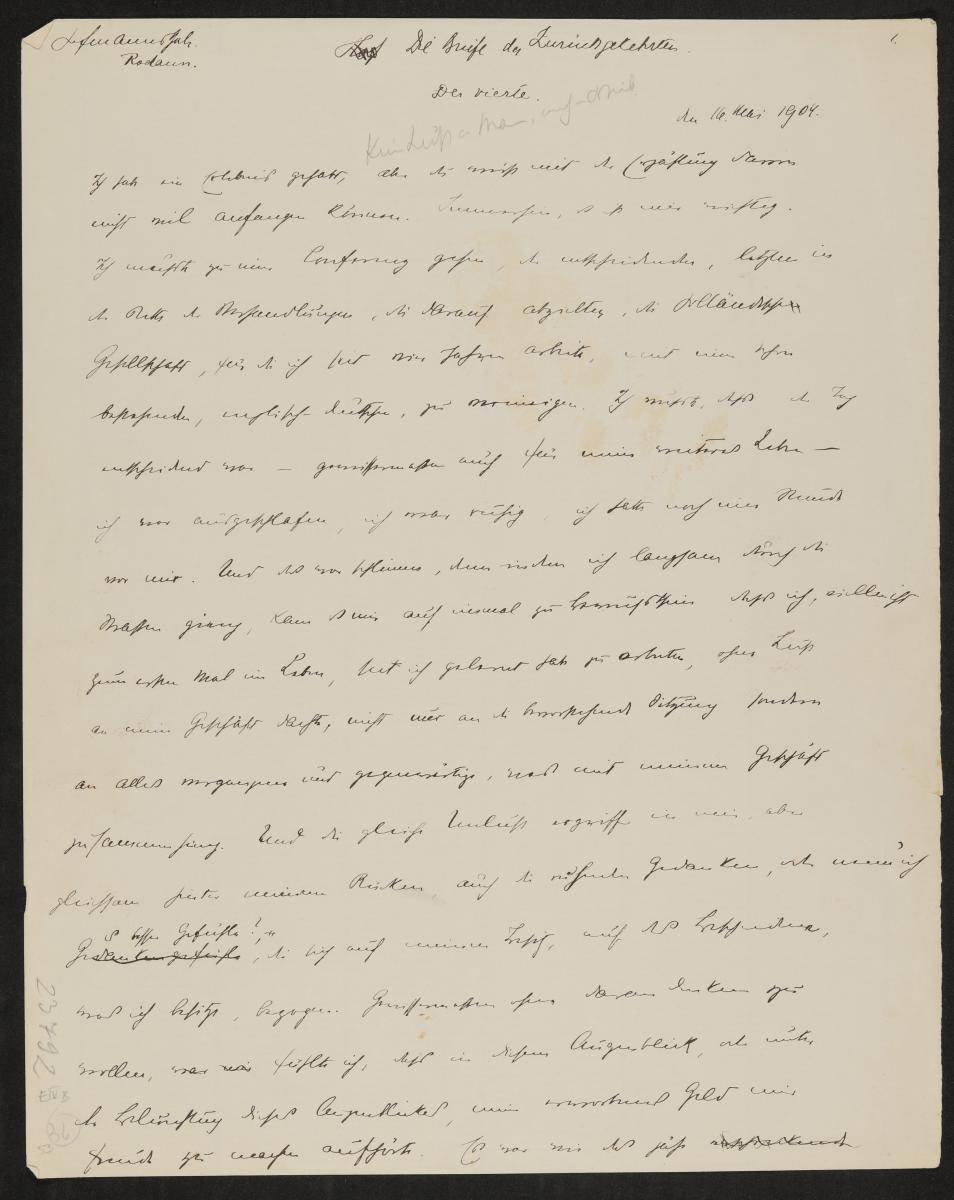 Hofmannsthal.
Rodaun.
1.
Die Briefe des Zurückgekehrten.
Der vierte.
den 16. Mai 1904.
Ich habe ein Erlebnis gehabt, aber Du wirst mit der Erzählung davon
nicht viel anfangen können. Immerhin, es ist mir wichtig.
Ich musste zu einer Conferenz gehen, der entscheidenden, letzten in
der Kette der Verhandlungen, die darauf abzielten, die holländische
Gesellschaft, für die ich seit vier Jahren arbeite, mit einer schon
bestehenden, englisch-deutschen, zu vereinigen. Ich wusste, dass der Tag
entscheidend war – gewissermassen auch für mein weiteres Leben –
ich war ausgeschlafen, ich war ruhig, ich hatte noch eine Stunde
vor mir. Und das war schlimm, denn indem ich langsam durch die
Strassen ging, kam es mir auf einmal zu Bewusstsein dass ich, vielleicht
zum ersten Mal im Leben, seit ich gelernt habe zu arbeiten, ohne Lust
an mein Geschäft dachte, nicht nur an die bevorstehende Sitzung sondern
an alles vergangene und gegenwärtige, was mit meinem Geschäft
zusammenhing. Und die gleiche Unlust ergriff in mir, aber
gleichsam hinter meinem Rücken, auch die ruhenden Gedanken, oder nenn ich
es besser Gefühle?,
Gedankengefühle, die sich auf meinen Besitz, auf das Bestehende,
was ich besitze, bezogen. Gewissermassen ohne daran denken zu
wollen, fühlte ich, dass in diesem Augenblick, oder unter
der Beleuchtung dieses Augenblickes, mein erworbenes Geld mir
Freude zu machen aufhörte. Es war mir das jähe
23792
E IV B